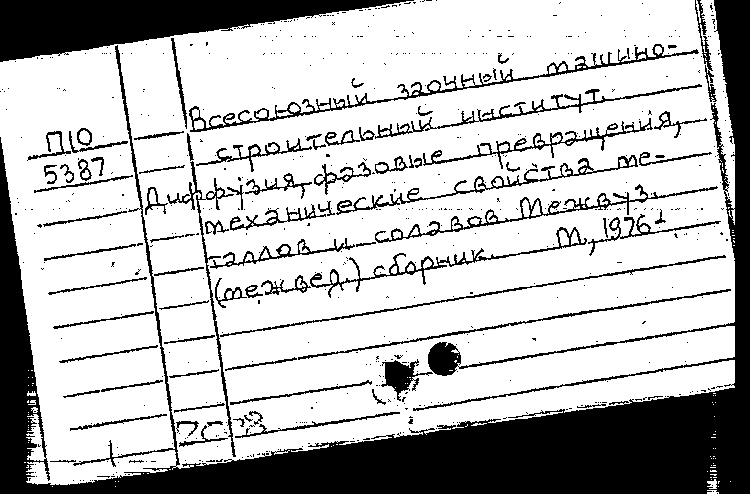 П10
5387
Всесоюзный заочный машино-
строительный институт.
Диффузия, фазовые превращения,
механические свойства ме-
таллов и сплавов. Межвуз.
(межвед.) сборник. М., 1976-